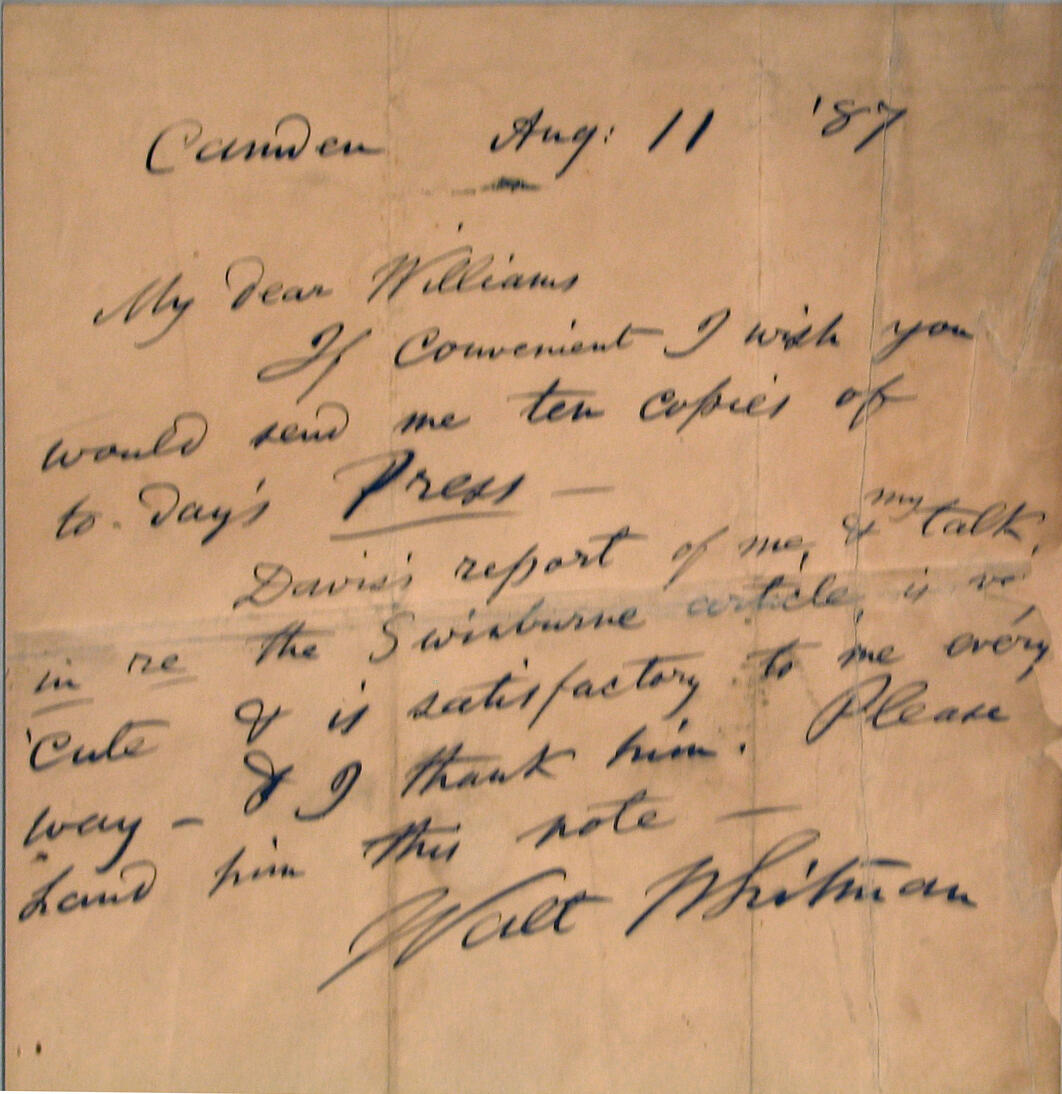 Camden Aug: 11 '87
My dear Williams
If convenient I wish you
would send me ten copies of
to-day's Press —
Davis's report of me, & my talk,
in re the Swinburne article, is
'cute & is satisfactory to me every
way — & I thank him. Please
hand him this note —
Walt Whitman